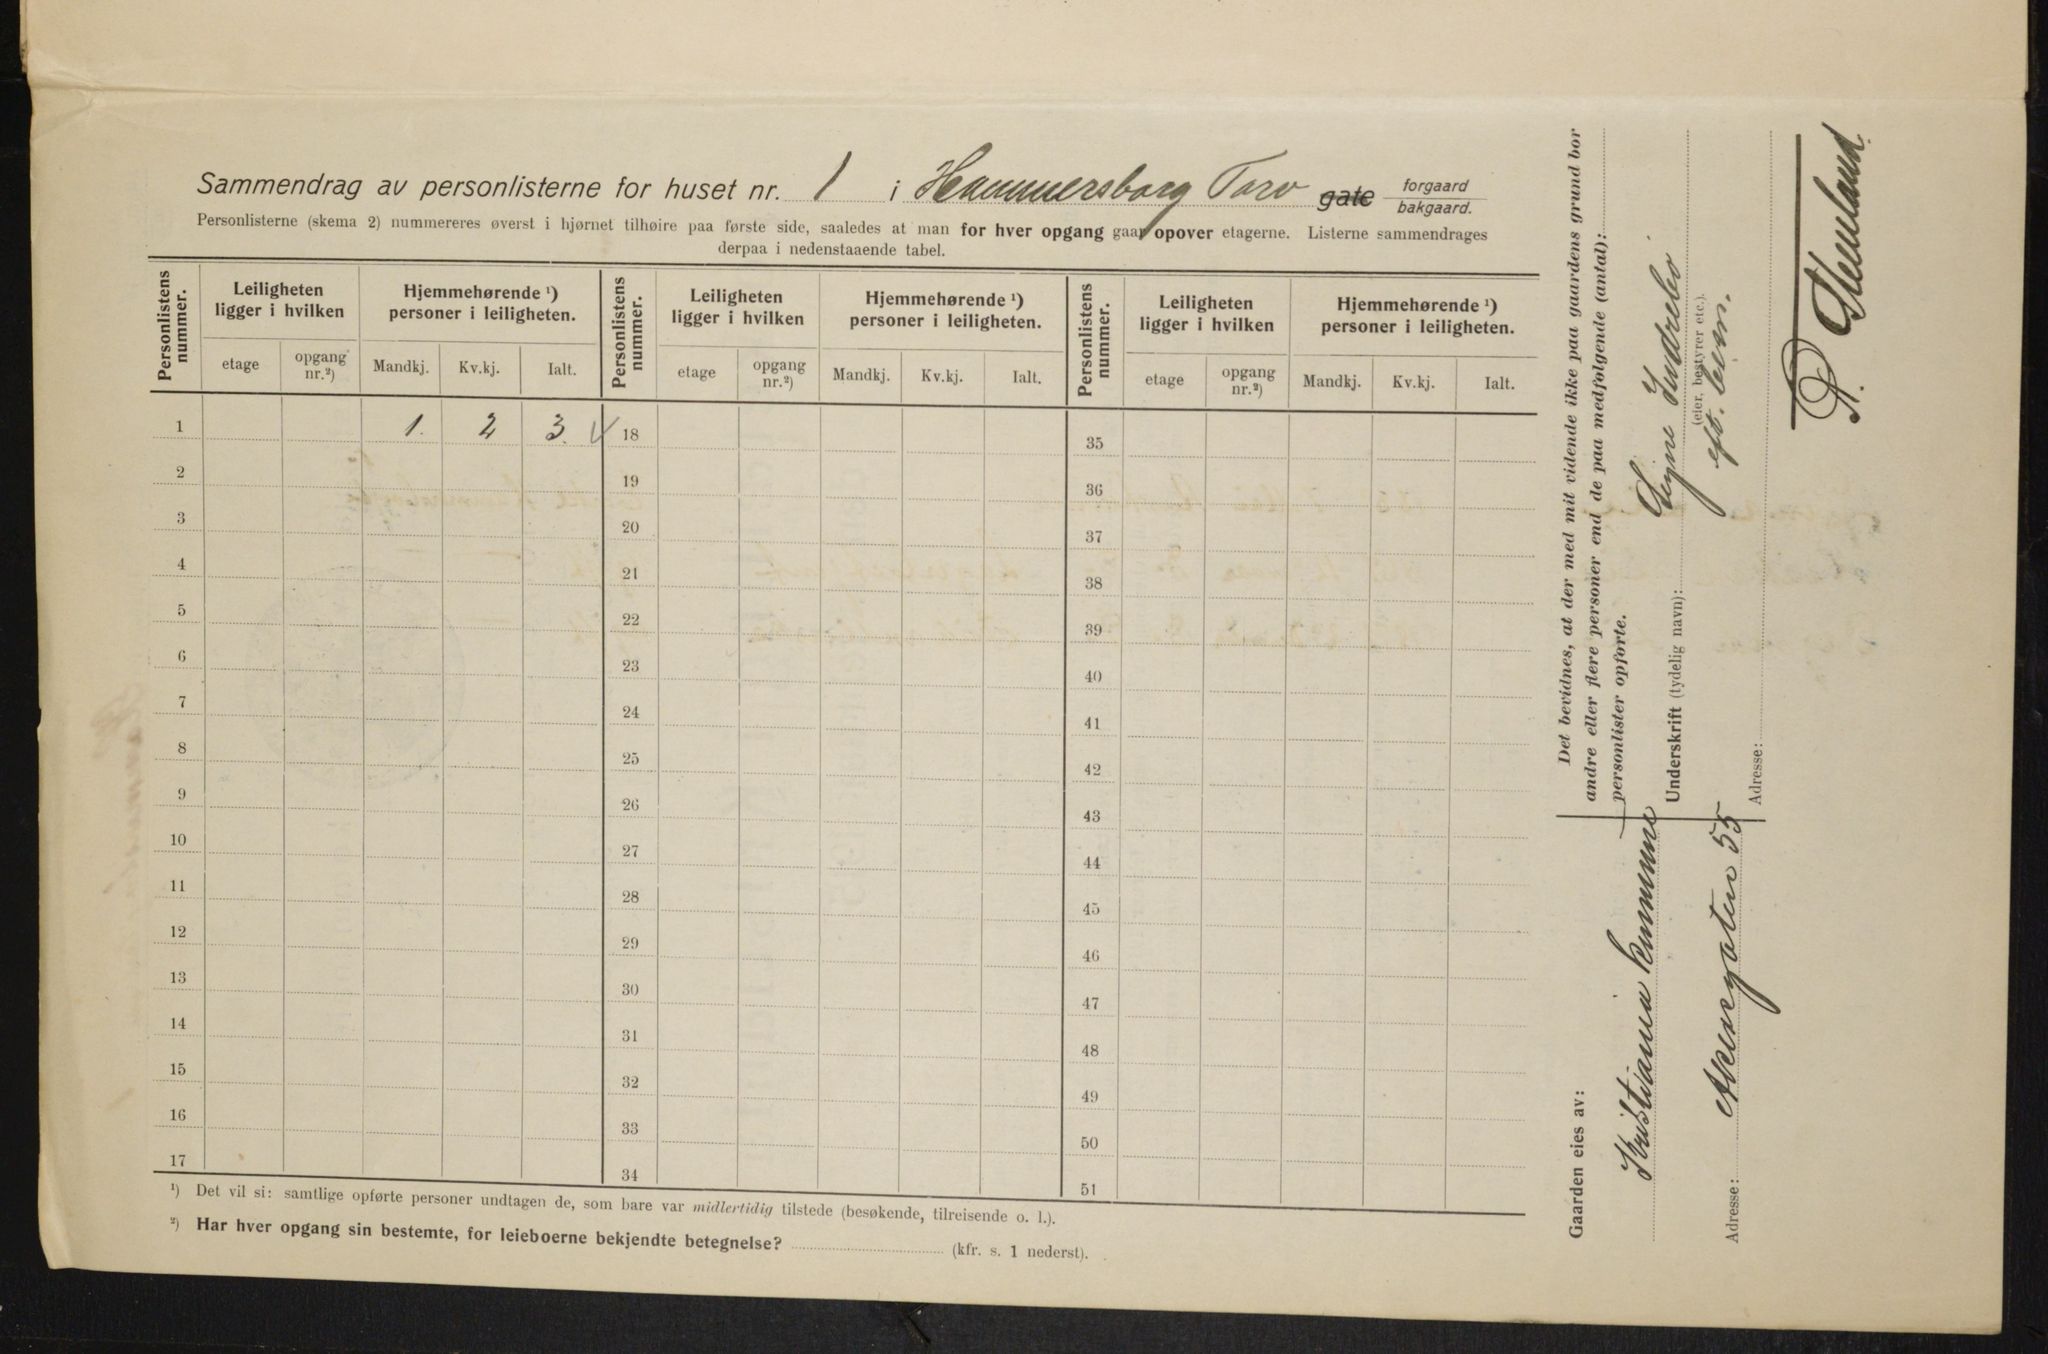 Sammendrag av personlisterne for huset nr. 1 i Hammersborg Torv gate forgaard bakgaard.
Personlisterne (skema 2) nummereres øverst i hjørnet tilhøire paa første side, saaledes at man for hver opgang gaar opover etagerne. Listerne sammendrages
derpaa i nedenstaaende tabel.
Personlistens nummer. Leiligheten ligger i hvilken Hjemmehørende ¹) personer i leiligheten. Personlistens nummer. Leiligheten ligger i hvilken Hjemmehørende ¹) personer i leiligheten. Personlistens nummer. Leiligheten ligger i hvilken Hjemmehørende ¹) personer i leiligheten.
etage opgang nr.²) Mandkj. Kv.kj. Ialt. etage opgang nr.²) Mandkj. Kv.kj. Ialt. etage opgang nr.²) Mandkj. Kv.kj. Ialt.
1 1. 2 3. 18 35
2 19 36
3 20 37
4 21 38
5 22 39
6 23 40
7 24 41
8 25 42
9 26 43
10 27 44
11 28 45
12 29 46
13 30 47
14 31 48
15 32 49
16 33 50
17 34 51
¹) Det vil si: samtlige opførte personer undtagen de, som bare var midlertidig tilstede (besøkende, tilreisende o. l.).
²) Har hver opgang sin bestemte, for leieboerne bekjendte betegnelse? (kfr. s. 1 nederst).
Det bevidnes, at der med mit vidende ikke paa gaardens grund bor
andre eller flere personer end de paa medfølgende (antal):
personlister opførte.
Underskrift (tydelig navn): Signe Indrebø
(eier, bestyrer etc.).
eft.
Adresse:
Gaarden eies av:
Kristiania kommune
Adresse: Akersgaten 55